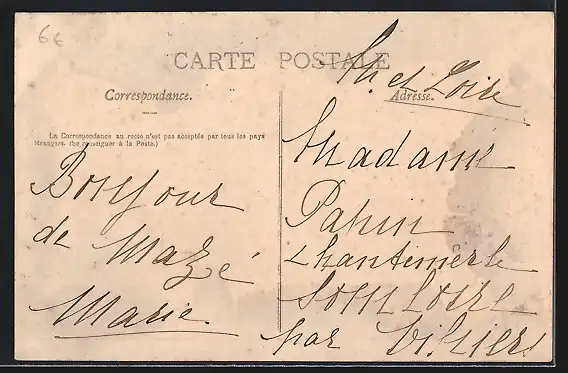 6€
CARTE POSTALE
Correspondance.
La Correspondance au recto n'est pas acceptée par tous les pays
étrangers. (Se renseigner à la Poste.)
Bonjour
de Mazé
Marie
M. et Loire
Adresse.
Madame
Papin
Chantemerle
Somloire
par Vihiers